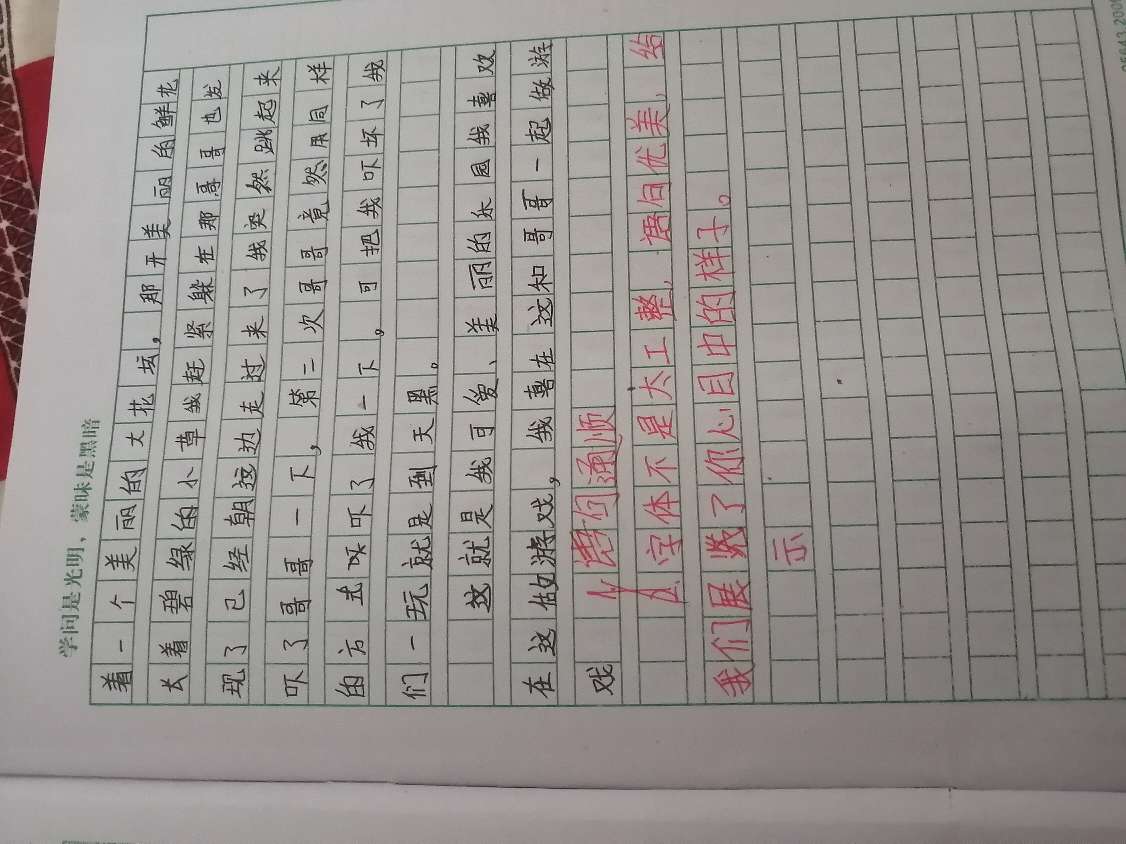 学问是光明，蒙昧是黑暗
着一个美丽的大花坛，那开美丽的鲜花
长着碧绿的小草我赶紧躲在那哥哥也发
现了已经朝这边走过来了我突然跳起来
吓了哥哥一下，第二次哥哥竟然用同样
的方式吓了我一下，可把我吓坏了我
们一玩就是到天黑。
这就是我可爱、美丽的乐园我喜欢
在这做游戏，我喜在这和哥哥一起做游
戏
语句通顺
字体不是太工整，语句优美，给
我们展览了你心目中的样子。
示